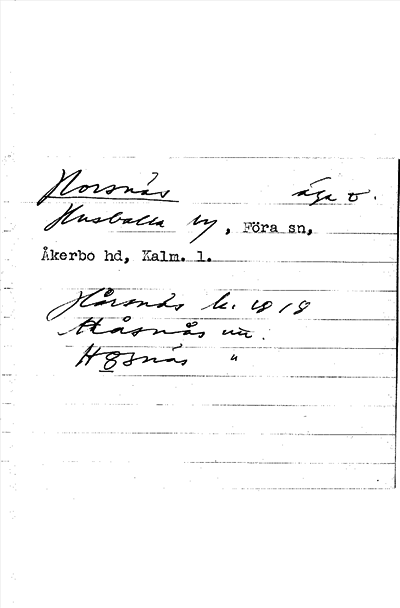 Horsnäs äga o.
Husvalla by, Föra sn,
Åkerbo hd, Kalm. l.
Hårsnäs k. 1818
Håsnäs
Hosnäs "